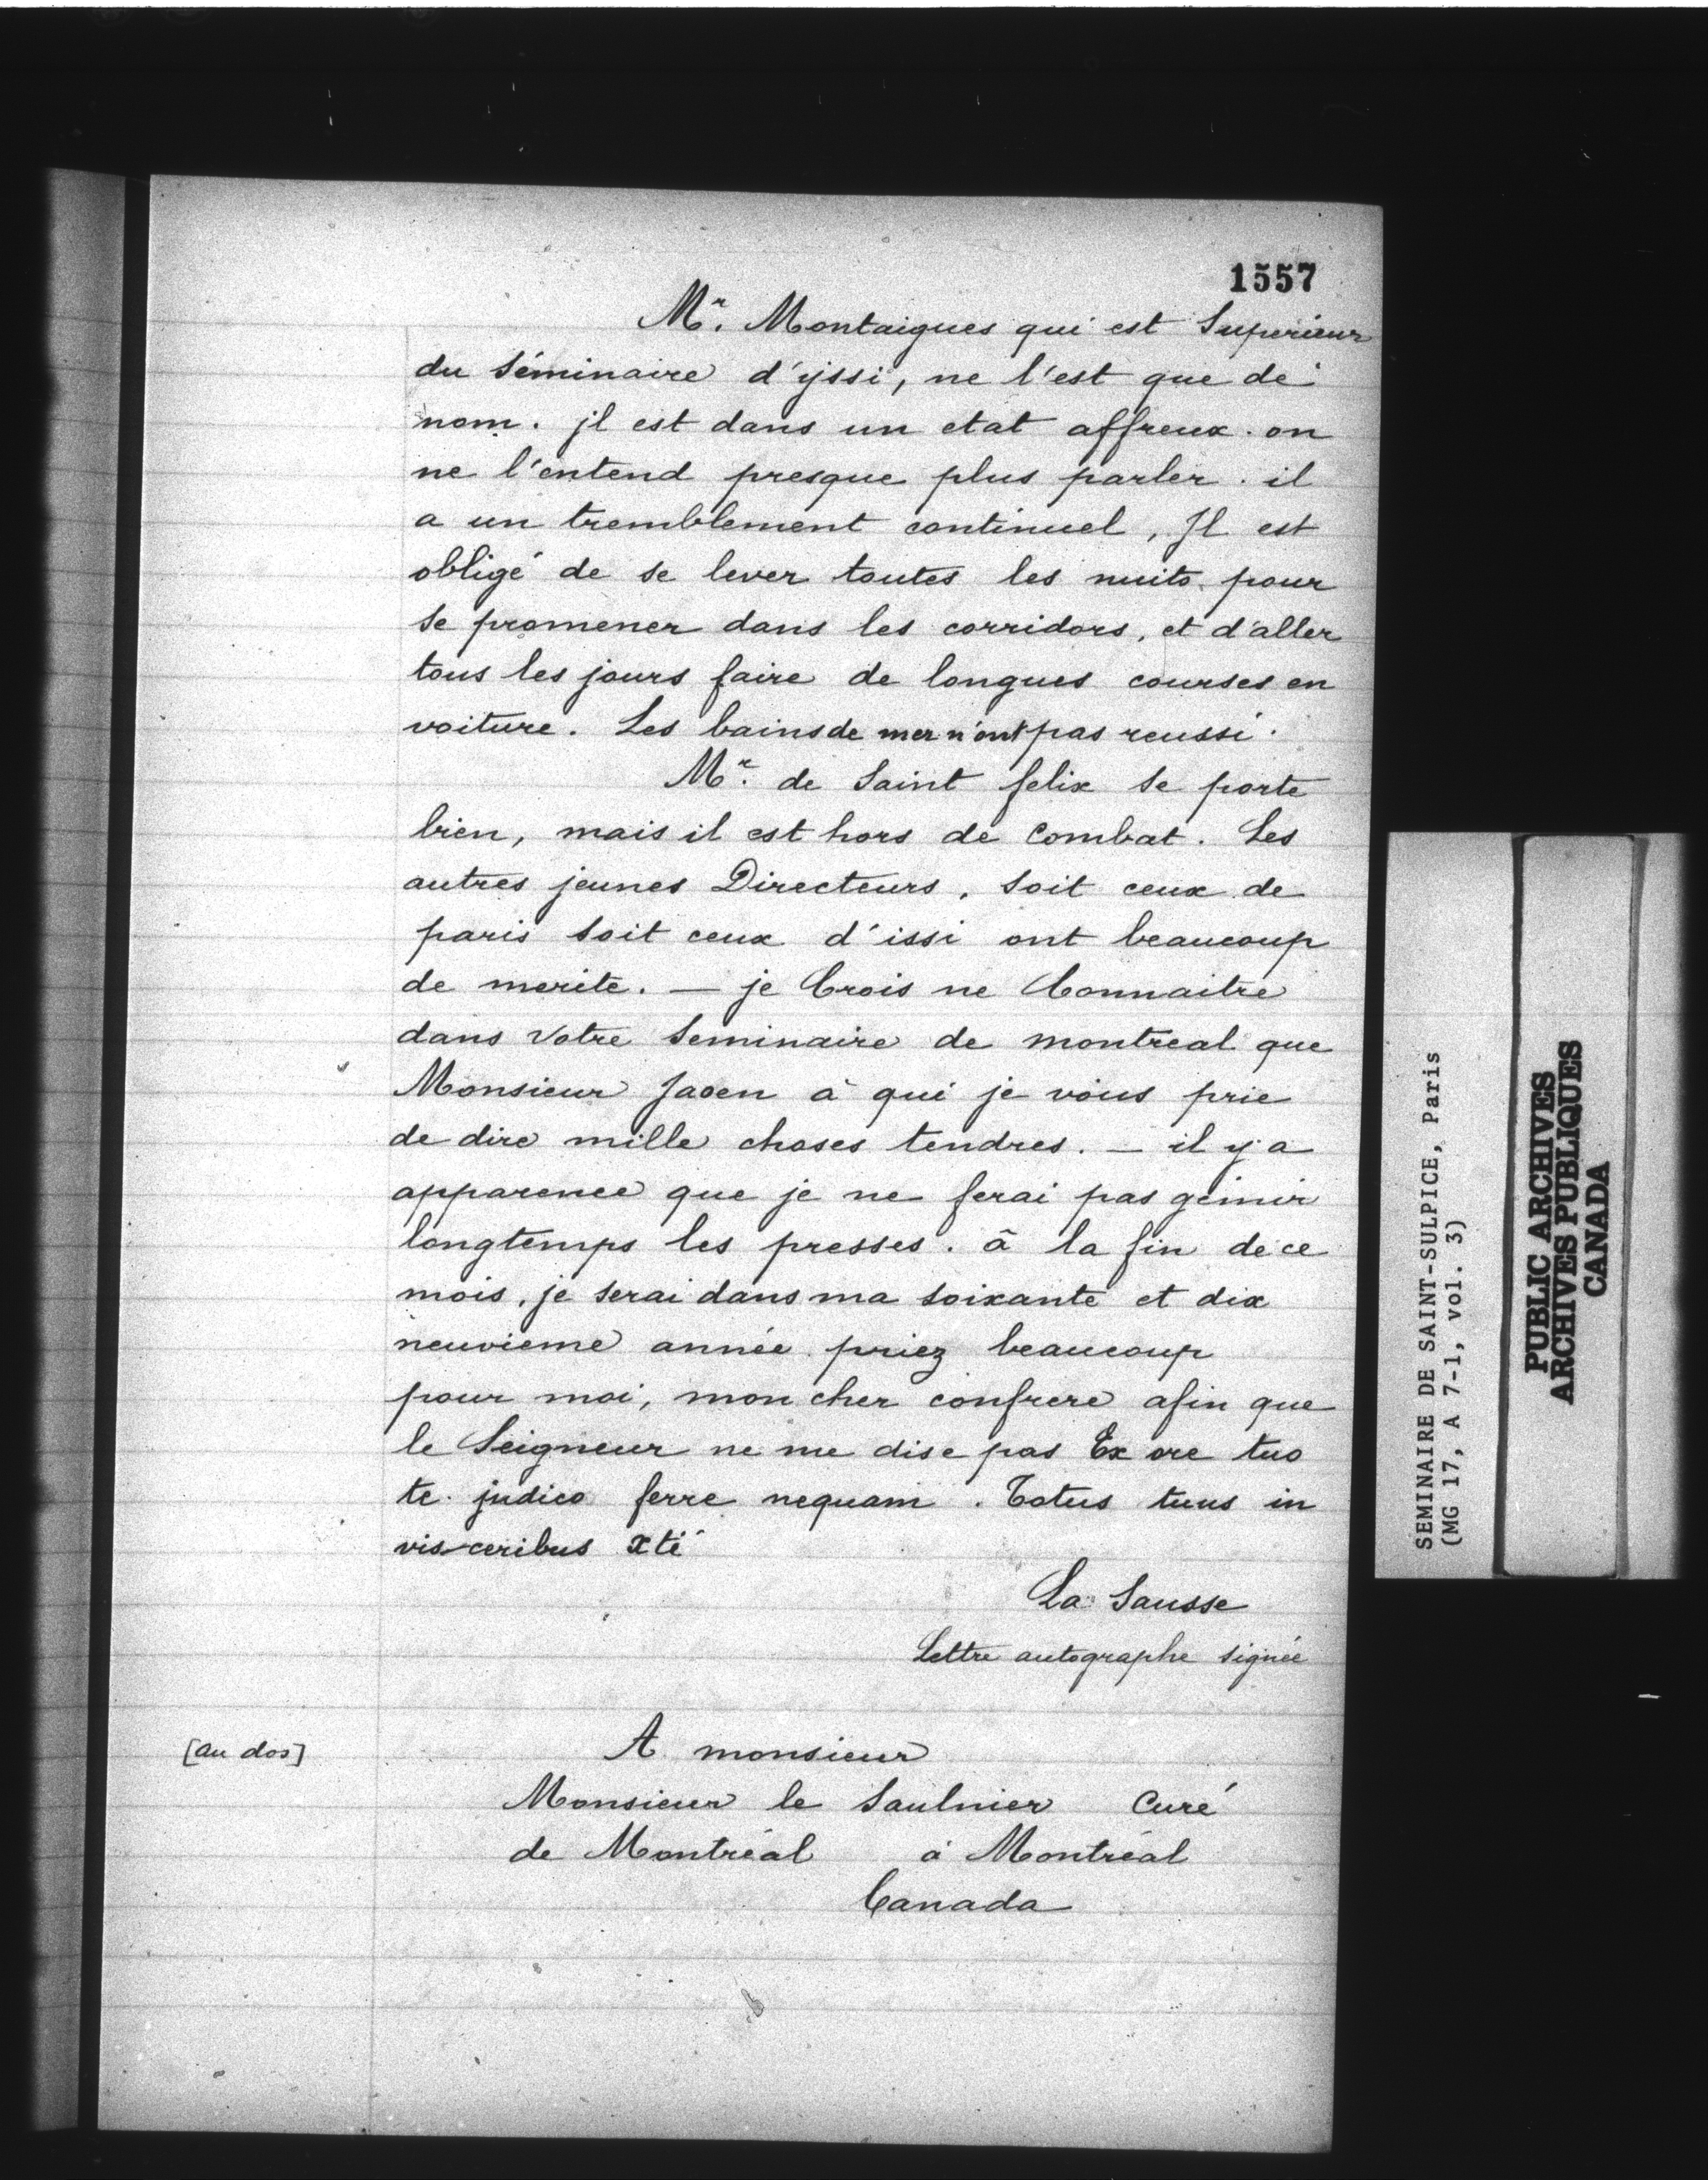 1557
Mr. Montaigues qui est Superieur
du Séminaire d'yssi, ne l'est que de
nom. jl est dans un etat affreux. on
ne l'entend presque plus parler. il
a un tremblement continuel, Jl est
obligé de se lever toutes les nuits pour
se promener dans les corridors, et d'aller
tous les jours faire de longues courses en
voiture. Les bains de mer n'ont pas reussi.
Mr. de Saint felix se porte
bien, mais il est hors de Combat. Les
autres jeunes Directeurs, soit ceux de
paris soit ceux d'issi ont beaucoup
de merite. — je Crois ne Connaitre
dans votre Seminaire de montreal que
Monsieur Jaoen à qui je vous prie
de dire mille choses tendres. — il y a
apparence que je ne ferai pas gémir
longtemps les presses. à la fin de ce
mois, je serai dans ma soixante et dix
neuvieme année. priez beaucoup
pour moi, mon cher confrere afin que
le Seigneur ne me dise pas Ex ore tuo
te judico ferre nequam. Totus tuus in
visceribus xti
La Sausse
Lettre autographe signée
[au dos]
A monsieur
Monsieur le Saulnier Curé
de Montréal à Montréal
Canada
SEMINAIRE DE SAINT-SULPICE, Paris
(MG 17, A 7-1, vol. 3)
PUBLIC ARCHIVES
ARCHIVES PUBLIQUES
CANADA